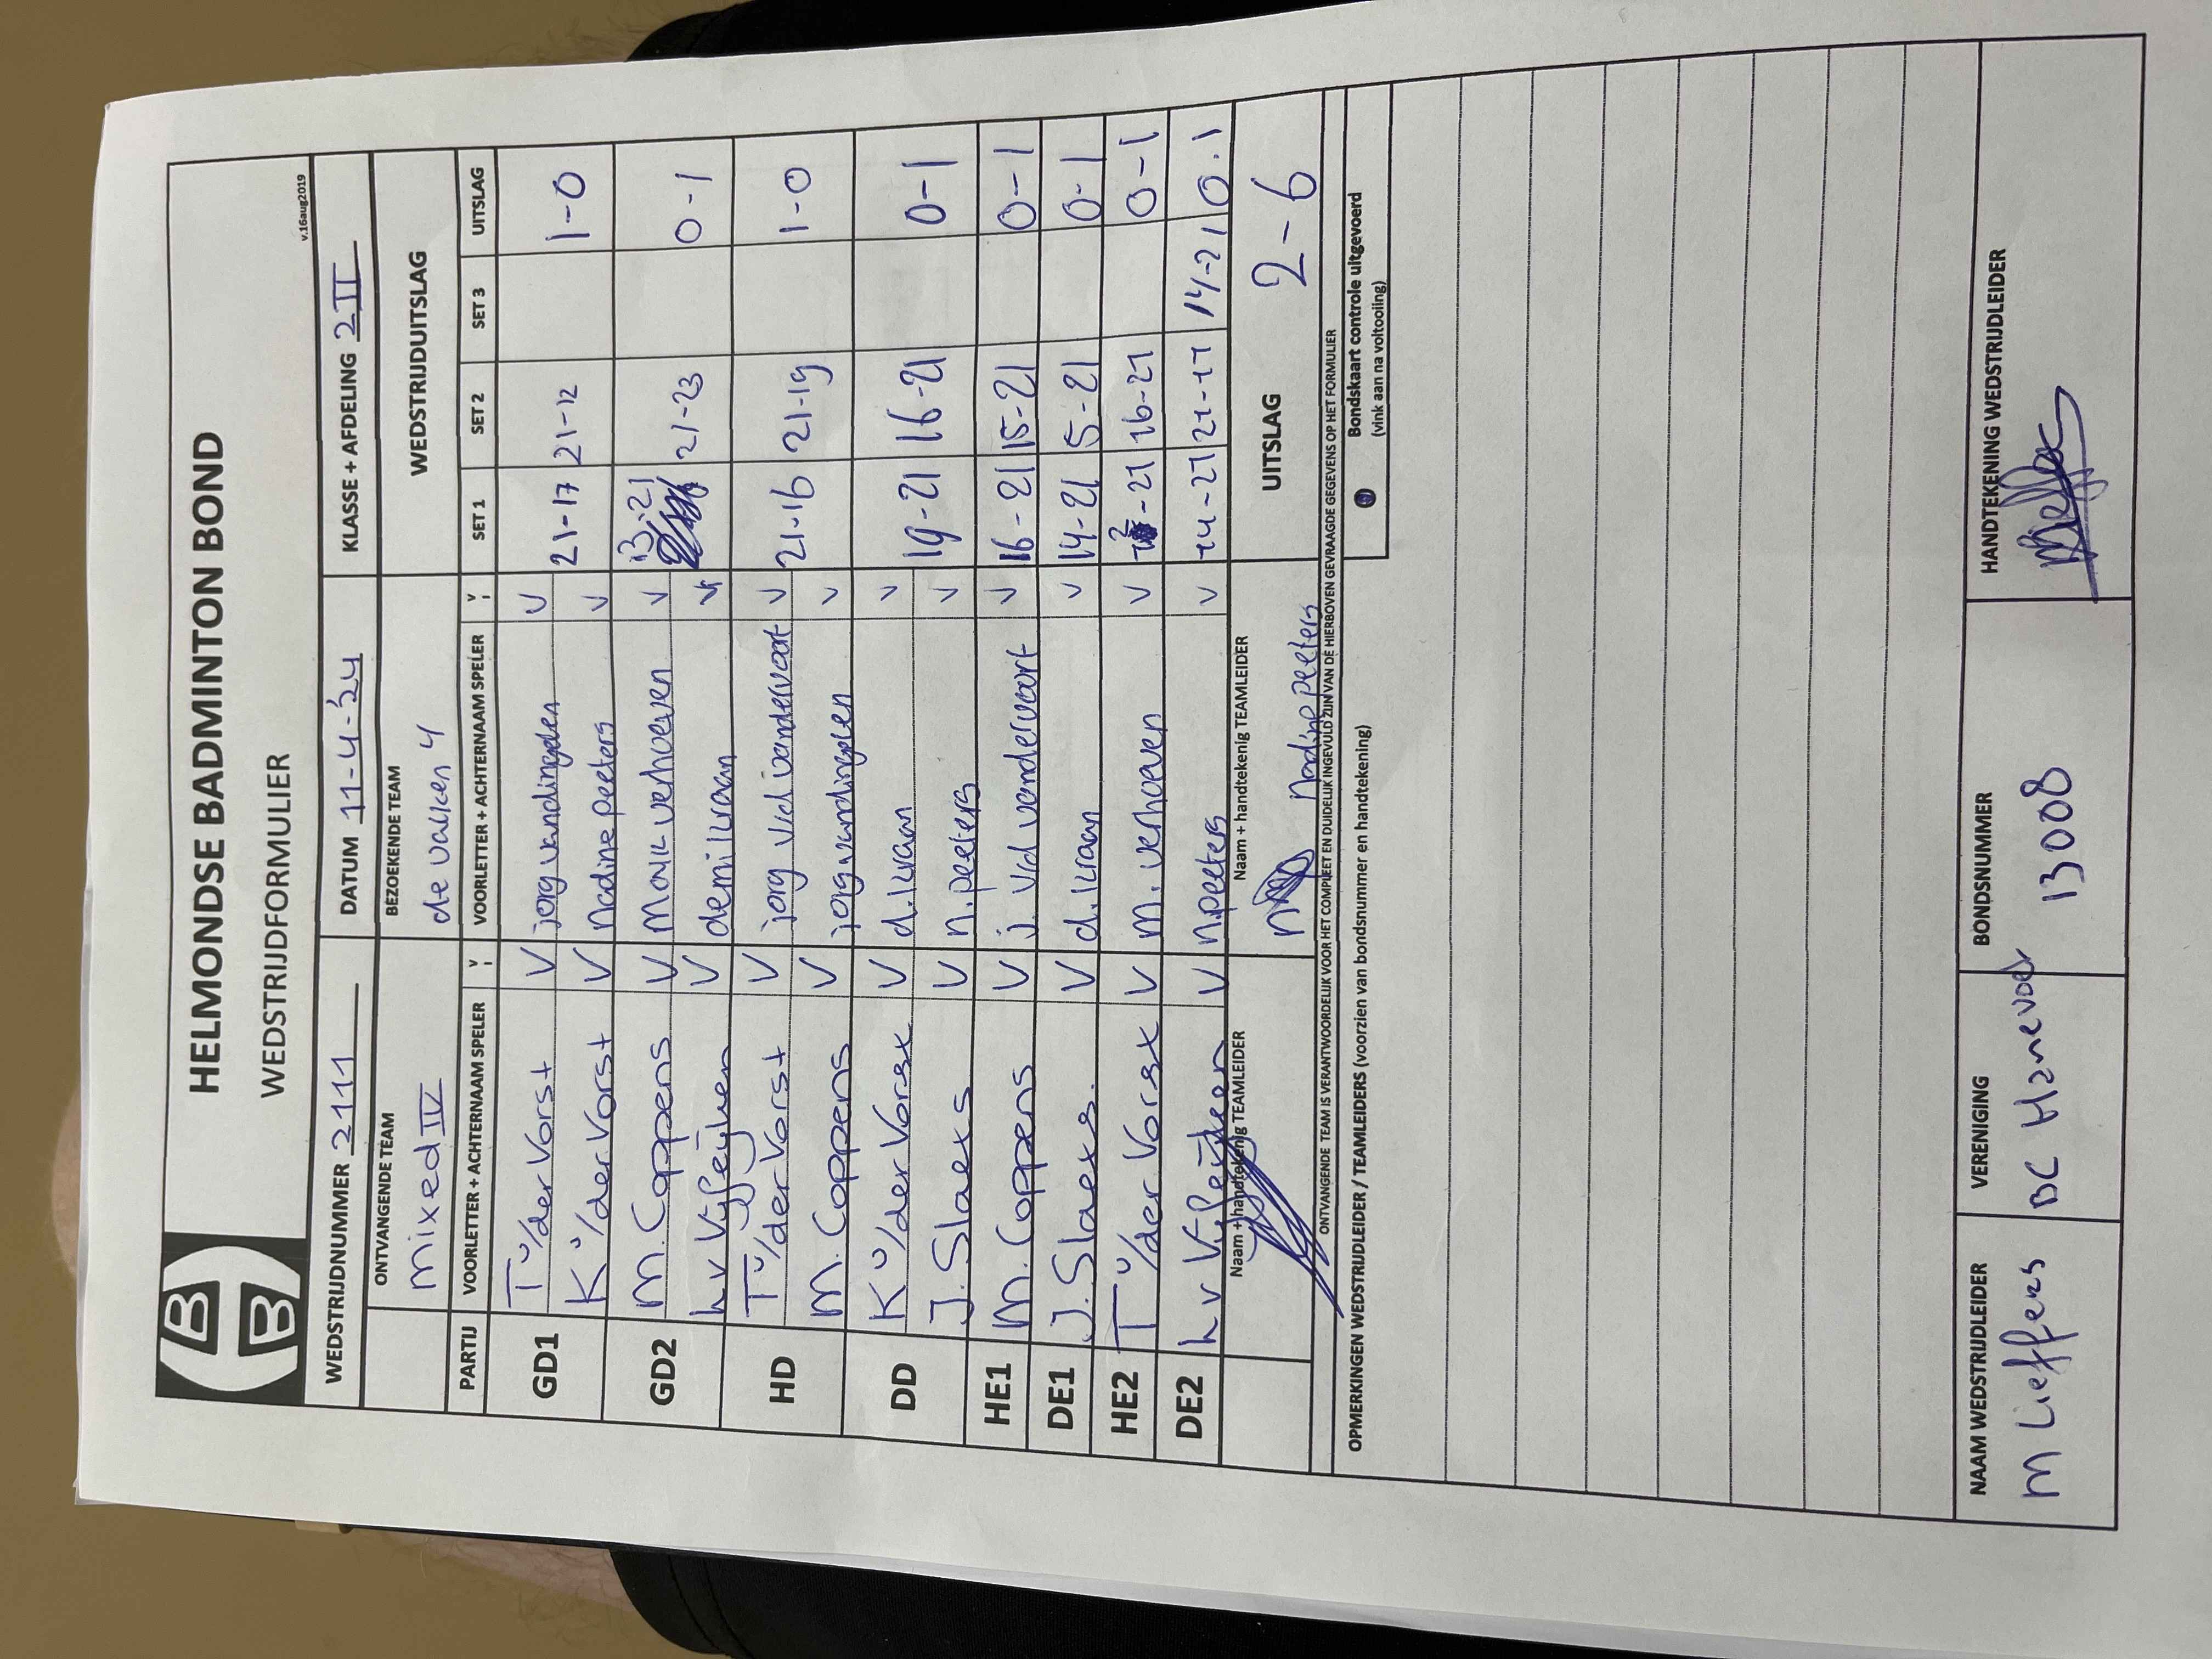 HELMONDSE BADMINTON BOND
WEDSTRIJDFORMULIER
v.16aug2019
WEDSTRIJDNUMMER 2111 DATUM 11-4-'24 KLASSE + AFDELING 2 II
ONTVANGENDE TEAM BEZOEKENDE TEAM WEDSTRIJDUITSLAG
mixed IV de valken 4
PARTIJ VOORLETTER + ACHTERNAAM SPELER V VOORLETTER + ACHTERNAAM SPELER V SET 1 SET 2 SET 3 UITSLAG
GD1 T v/der Vorst V jorg vandingelen V 21-17 21-12 1-0
K v/der Vorst V nadine peeters V
GD2 M. Coppens V mark verhoeven V 13-21 21-23 0-1
L v Vijfeijken V demi kraan V
HD T v/der Vorst V jorg vd vandervoort V 21-16 21-19 1-0
M. Coppens V jorg vandingelen V
DD K v/der Vorst V d. kraan V 19-21 16-21 0-1
J. Slaets V n. peeters V
HE1 M. Coppens V j. vd vandervoort V 16-21 15-21 0-1
DE1 J. Slaets. V d. kraan V 14-21 5-21 0-1
HE2 T v/der Vorst V m. verhoeven V 12-21 16-21 0-1
DE2 L v Vijfeijken V n.peeters V 14-21 21-17 14-21 0.1
Naam + handtekenig TEAMLEIDER Naam + handtekenig TEAMLEIDER UITSLAG 2-6
nadine peeters
ONTVANGENDE TEAM IS VERANTWOORDELIJK VOOR HET COMPLEET EN DUIDELIJK INGEVULD ZIJN VAN DE HIERBOVEN GEVRAAGDE GEGEVENS OP HET FORMULIER
OPMERKINGEN WEDSTRIJDLEIDER / TEAMLEIDERS (voorzien van bondsnummer en handtekening)
Bondskaart controle uitgevoerd
(vink aan na voltooling)
NAAM WEDSTRIJDLEIDER VERENIGING BONDSNUMMER HANDTEKENING WEDSTRIJDLEIDER
M Lieffers BC Hanevoet 13008